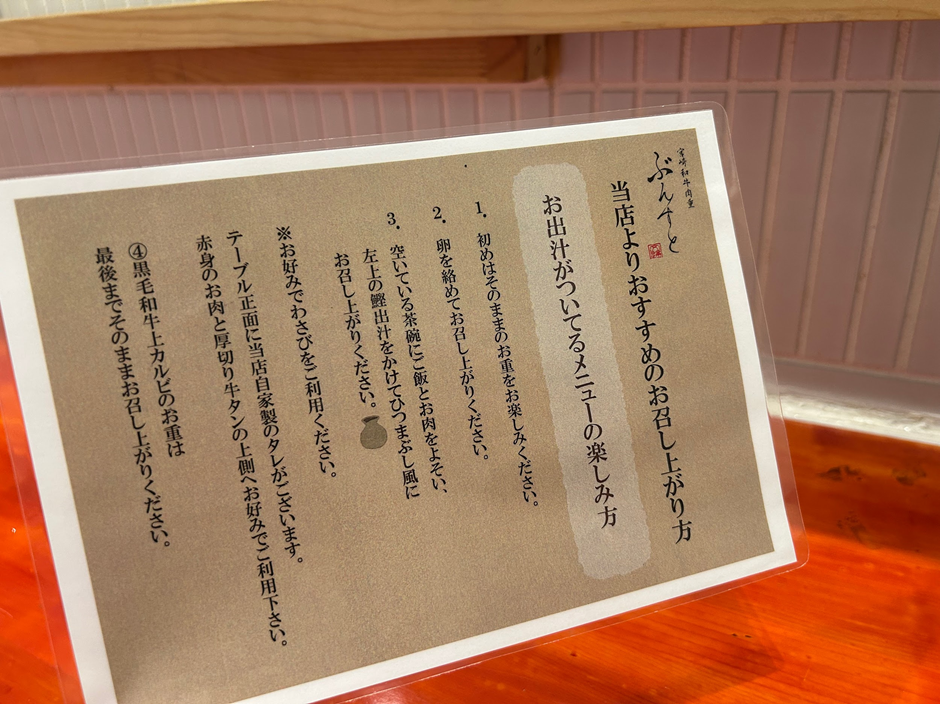 宮崎和牛肉重
ぶんすと
当店よりおすすめのお召し上がり方
お出汁がついてるメニューの楽しみ方
1. 初めはそのままのお重をお楽しみください。
2. 卵を絡めてお召し上がりください。
3. 空いている茶碗にご飯とお肉をよそい、
左上の鰹出汁をかけてひつまぶし風に
お召し上がりください。
※お好みでわさびをご利用ください。
テーブル正面に当店自家製のタレがございます。
赤身のお肉と厚切り牛タンの上側へお好みでご利用下さい。
④黒毛和牛上カルビのお重は
最後までそのままお召し上がりください。